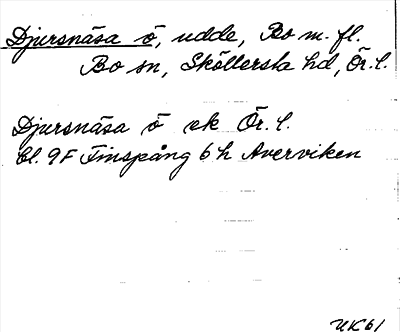 Djursnäsa ö, udde, Bo m. fl.
Bo sn, Sköllersta hd, Ör. l.
Djursnäsa ö ek Ör. l.
bl. 9F Finspång 6 h Averviken
UK61